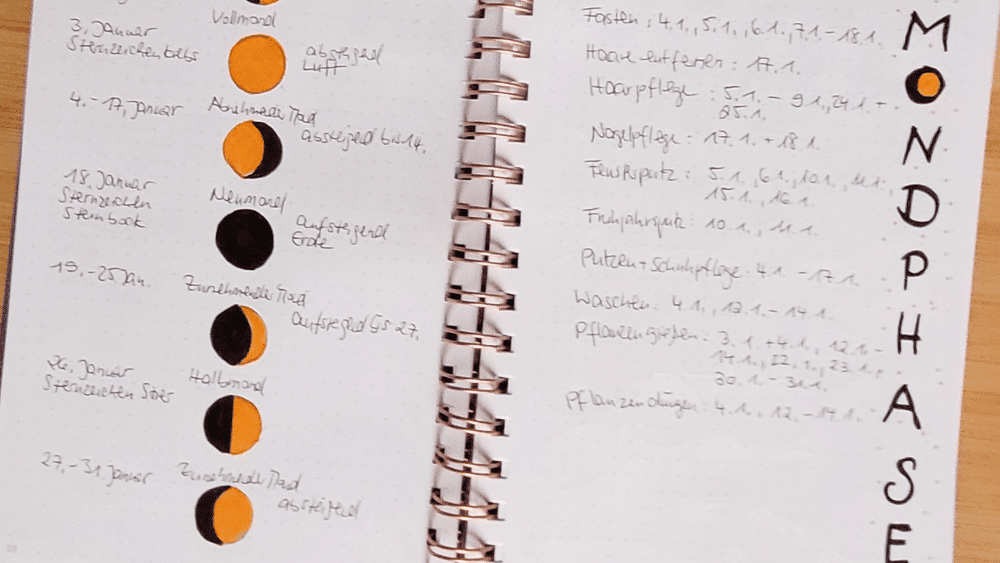 Vollmond
3. Januar
Sternzeichen Krebs
absteigend
Luft
4. - 17. Januar
Abnehmende Mond
absteigend bis 14.
18. Januar
Sternzeichen
Steinbock
Neumond
Aufsteigend
Erde
19. - 25 Jan.
Zunehmende Mond
Aufsteigend bis 27.
26. Januar
Sternzeichen Stier
Halbmond
27. - 31. Januar
Zunehmende Mond
absteigend
Fasten: 4.1., 5.1., 6.1., 7.1. - 18.1.
Haare entfernen: 17.1.
Haarpflege: 5.1. - 9.1., 24.1. +
25.1.
Nagelpflege: 17.1. + 18.1.
Fensterputz: 5.1., 6.1., 10.1., 11.1.,
15.1., 16.1.
Frühjahrsputz: 10.1., 11.1.
Putzen + Schuhpflege: 4.1. - 17.1.
Waschen: 4.1., 12.1. - 14.1.
Pflanzen gießen: 3.1. + 4.1., 12.1. -
14.1., 22.1., 23.1.,
30.1. - 31.1.
Pflanzen düngen: 4.1., 12. - 14.1.
MONDPHASE